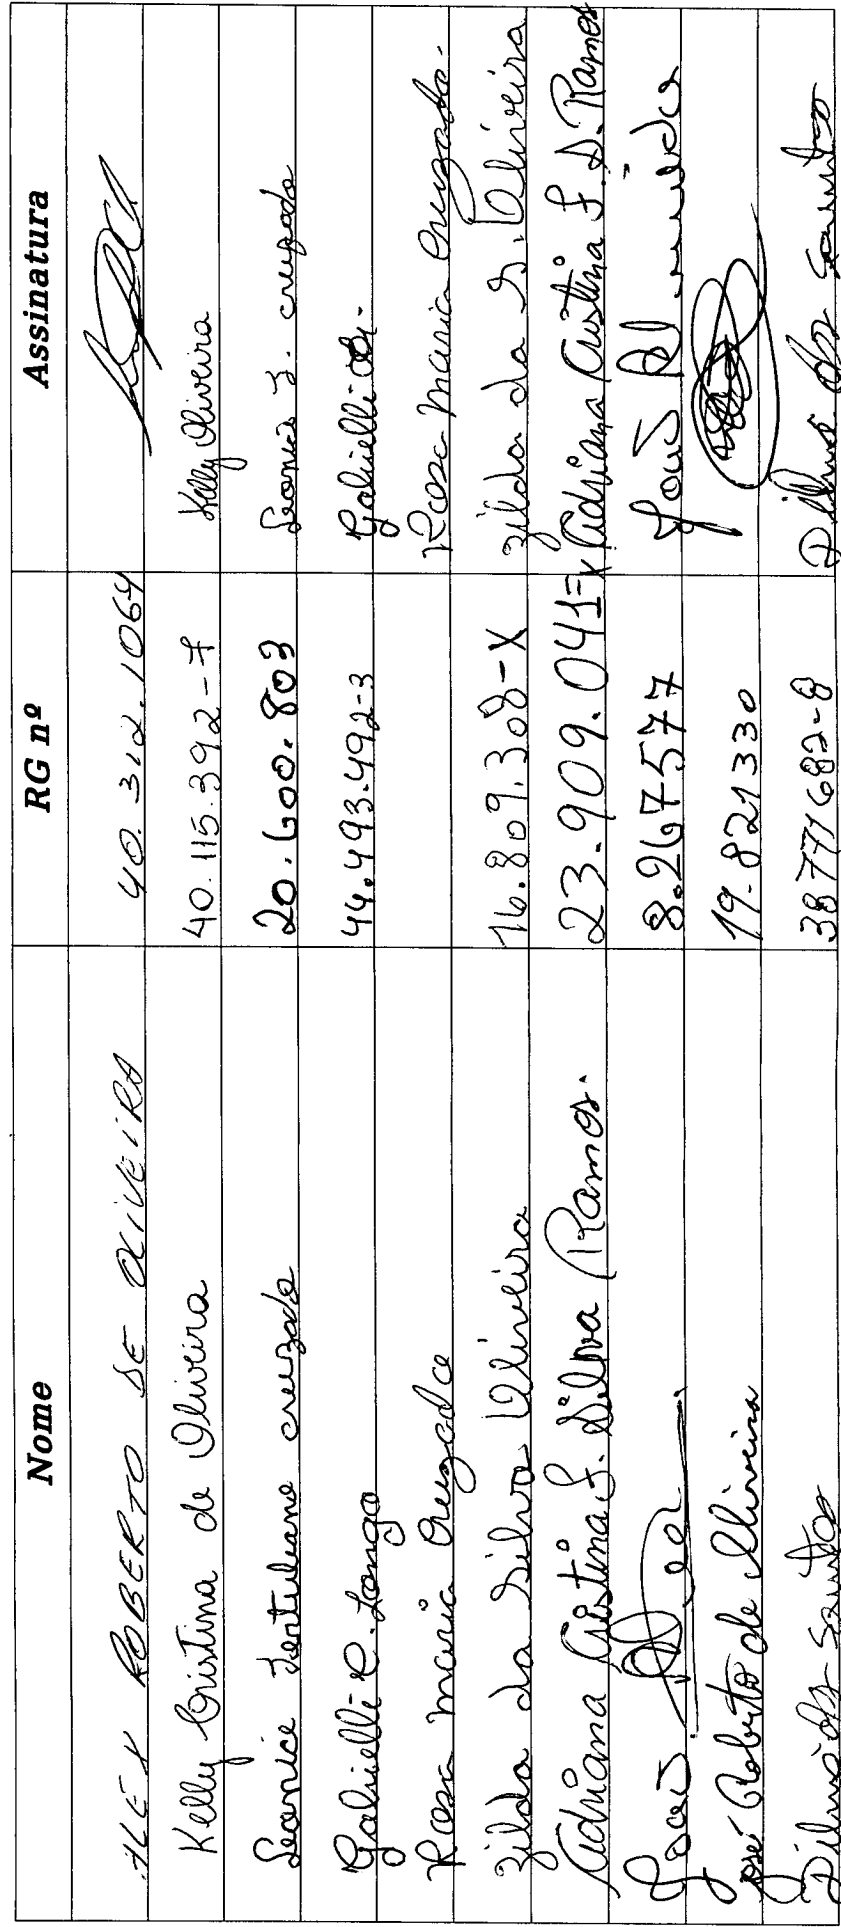 Nome RG nº Assinatura
ALEX ROBERTO DE OLIVEIRA 40.312.1064
Kelly Cristina de Oliveira 40.115.392-7 Kelly Oliveira
Leonice Tertuliano cruzado 20.600.803 Leonice T. cruzado
Gabrielli C. Longo 44.493.492-3 Gabrielli
Rosa Maria Cruzado Rosa Maria Cruzado.
zilda da Silva Oliveira 16.809.308-X zilda da S. Oliveira
Adriana Cristina S. Silva Ramos. 23.909.041-x Adriana Cristina S. S. Ramos
8.267577
José Roberto de Oliveira 19.821330
dos Santos 38771682-8 dos Santos